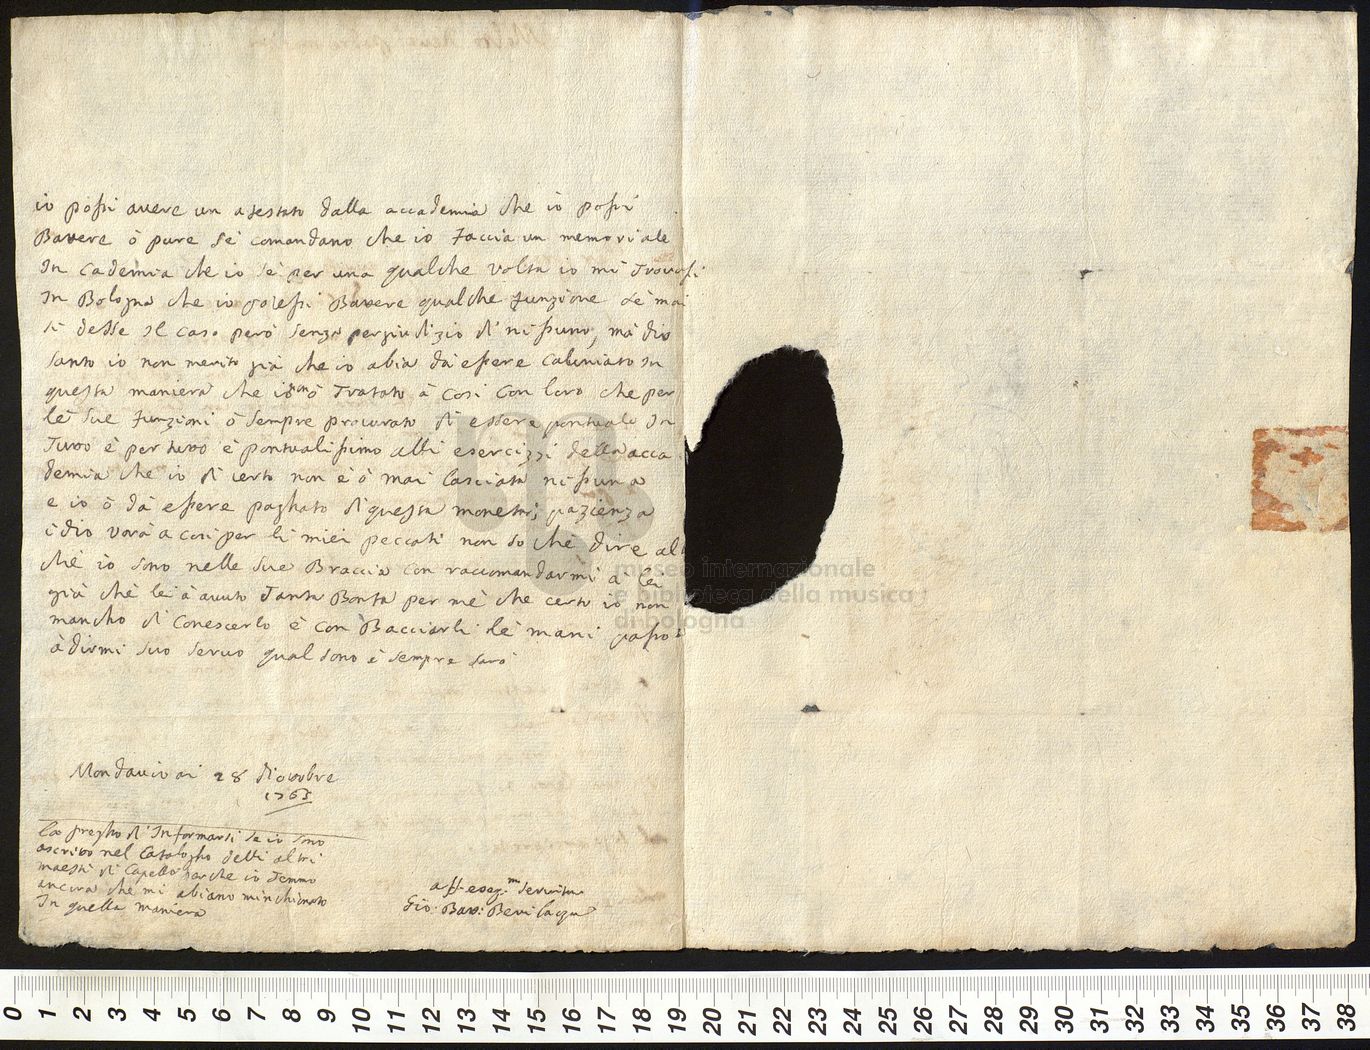 io possi avere un atestato dalla accademia che io possi
Batere ò pure se comandano che io faccia un memoriale
In Cademia che io se per una qualche volta io mi Trovassi
In Bologna che io potessi Batere qualche funzione se mai
si desse il caso però senza pergiudizio di nissuno, mà dio
santo io non merito già che io abia dà essere caluniato in
questa maniera che io ò Tratato à cosi con loro che per
lè sue funzioni ò sempre procurato di essere pontuale In
Tutto è per tutto è pontualissimo alli esercizzi della acca
demia che io di certo non è ò mai lasciata nissuna
e io ò dà essere paghato di questa moneta; pazienza
idio vorà a cosi per li miei peccati non so chè dire al
chè io sono nelle sue Braccia con raccomandarmi à lei
già chè lei à avuto Tanta Bontà per mè che certo io non
mancho di Conescerlo è con Bacciarli lè mani passo
à dirmi suo servo qual sono è sempre sarò
Mondavio ai 28 diottobre
1763
La pregho di Informarsi se io sono
ascritto nel Catalogho delli altri
maestri di Capella perche io Temmo
ancora che mi abiano minchionato
In quella maniera
Servitore
Gio: Batt: Bevilacqua
museo internazionale
e biblioteca della musica
di bologna
0 1 2 3 4 5 6 7 8 9 10 11 12 13 14 15 16 17 18 19 20 21 22 23 24 25 26 27 28 29 30 31 32 33 34 35 36 37 38